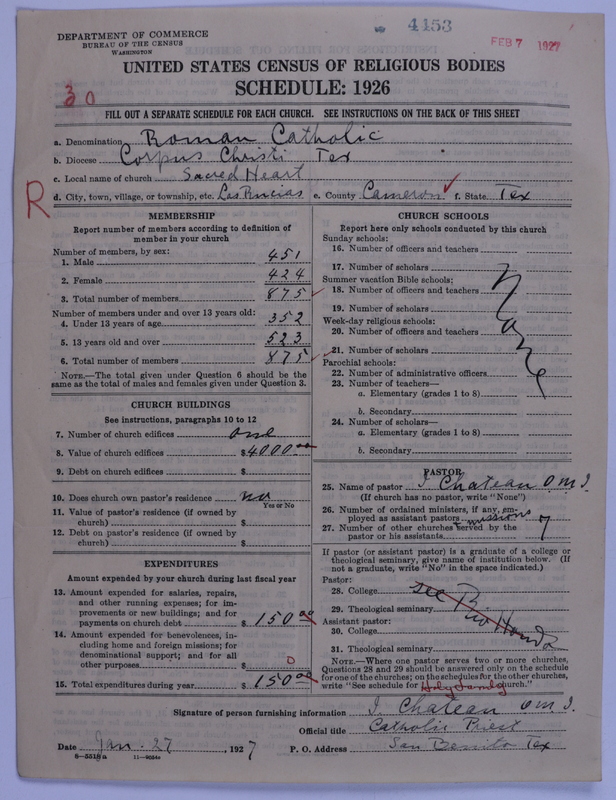 4153
FEB 7 1927
DEPARTMENT OF COMMERCE
BUREAU OF THE CENSUS
WASHINGTON
UNITED STATES CENSUS OF RELIGIOUS BODIES
SCHEDULE: 1926
30
FILL OUT A SEPARATE SCHEDULE FOR EACH CHURCH. SEE INSTRUCTIONS ON THE BACK OF THIS SHEET
a. Denomination Roman Catholic
b. Diocese Corpus Christi Tex
c. Local name of church Sacred Heart
R
d. City, town, village, or township, etc. Las Rucias e. County Cameron f. State Tex
MEMBERSHIP
Report number of members according to definition of
member in your church
Number of members, by sex:
1. Male 451
2. Female 424
3. Total number of members 875
Number of members under and over 13 years old:
4. Under 13 years of age 352
5. 13 years old and over 523
6. Total number of members 875
NOTE.—The total given under Question 6 should be
the same as the total of males and females given under Question 3.
CHURCH BUILDINGS
See instructions, paragraphs 10 to 12
7. Number of church edifices one
8. Value of church edifices $4000.00
9. Debt on church edifices $
10. Does church own pastor's residence no
Yes or No
11. Value of pastor's residence (if owned by
church) $
12. Debt on pastor's residence (if owned by
church) $
EXPENDITURES
Amount expended by your church during last fiscal year
13. Amount expended for salaries, repairs,
and other running expenses; for im-
provements or new buildings; and for
payments on church debt $150.00
14. Amount expended for benevolences, in-
cluding home and foreign missions; for
denominational support; and for all
other purposes $ 0
15. Total expenditures during year $150.00
CHURCH SCHOOLS
Report here only schools conducted by this church
Sunday schools:
16. Number of officers and teachers
17. Number of scholars
Summer vacation Bible schools:
18. Number of officers and teachers
19. Number of scholars
Week-day religious schools:
20. Number of officers and teachers
21. Number of scholars
Parochial schools:
22. Number of administrative officers
23. Number of teachers—
a. Elementary (grades 1 to 8)
b. Secondary
24. Number of scholars—
a. Elementary (grades 1 to 8)
b. Secondary
None
PASTOR
25. Name of pastor I Chateau O M I.
(If church has no pastor, write "None")
26. Number of ordained ministers, if any, em-
ployed as assistant pastors
missions
27. Number of other churches served by the
pastor or his assistants 7
If pastor (or assistant pastor) is a graduate of a college or
theological seminary, give name of institution below. (If
not a graduate, write "No" in the space indicated.)
Pastor:
28. College
see Rio Hondo
29. Theological seminary
Assistant pastor:
30. College
31. Theological seminary
NOTE.—Where one pastor serves two or more churches,
Questions 28 and 29 should be answered only on the schedule
for one of the churches; on the schedules for the other churches,
write "See schedule for Holy Family church."
Signature of person furnishing information I. Chateau O M I.
Official title Catholic Priest
Date Jan. 27, 1927 P. O. Address San Benito Tex
8—5518a